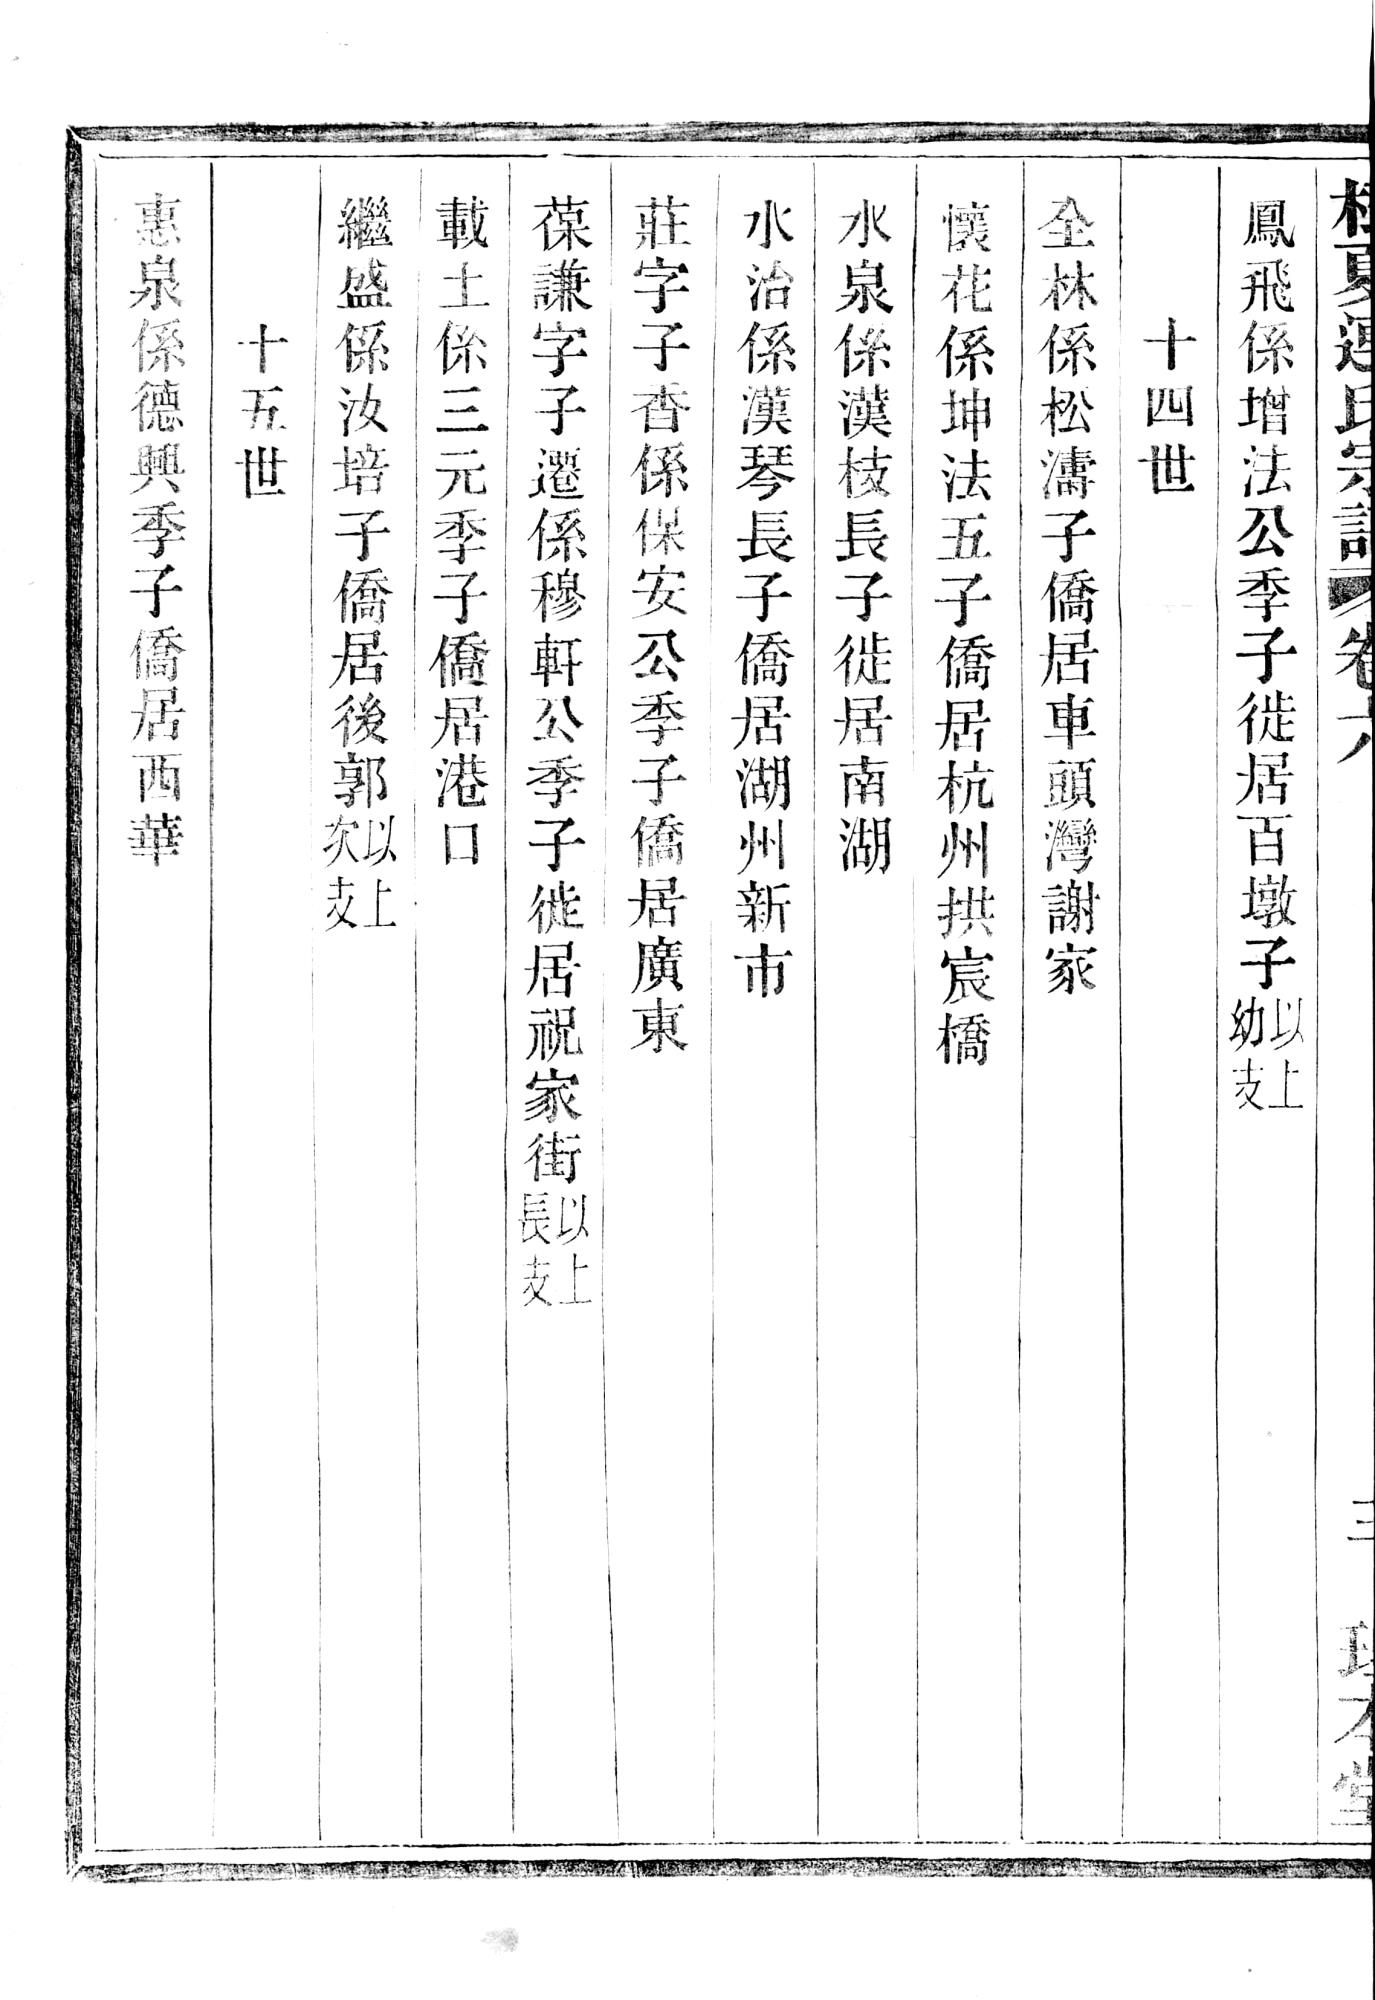 夏連氏宗譜 卷六 三 本堂
鳳飛係增法公季子徙居百墩子以上幼支
十四世
全林係松濤子僑居車頭灣謝家
懷花係坤法五子僑居杭州拱宸橋
水泉係漢枝長子徙居南湖
水治係漢琴長子僑居湖州新市
莊字子香係保安公季子僑居廣東
葆謙字子遷係穆軒公季子徙居祝家街以上長支
載土係三元季子僑居港口
繼盛係汝培子僑居後郭以上次支
十五世
惠泉係德興季子僑居西華